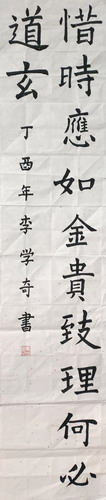 惜時應如金貴致理何必
道玄
丁酉年李学奇書